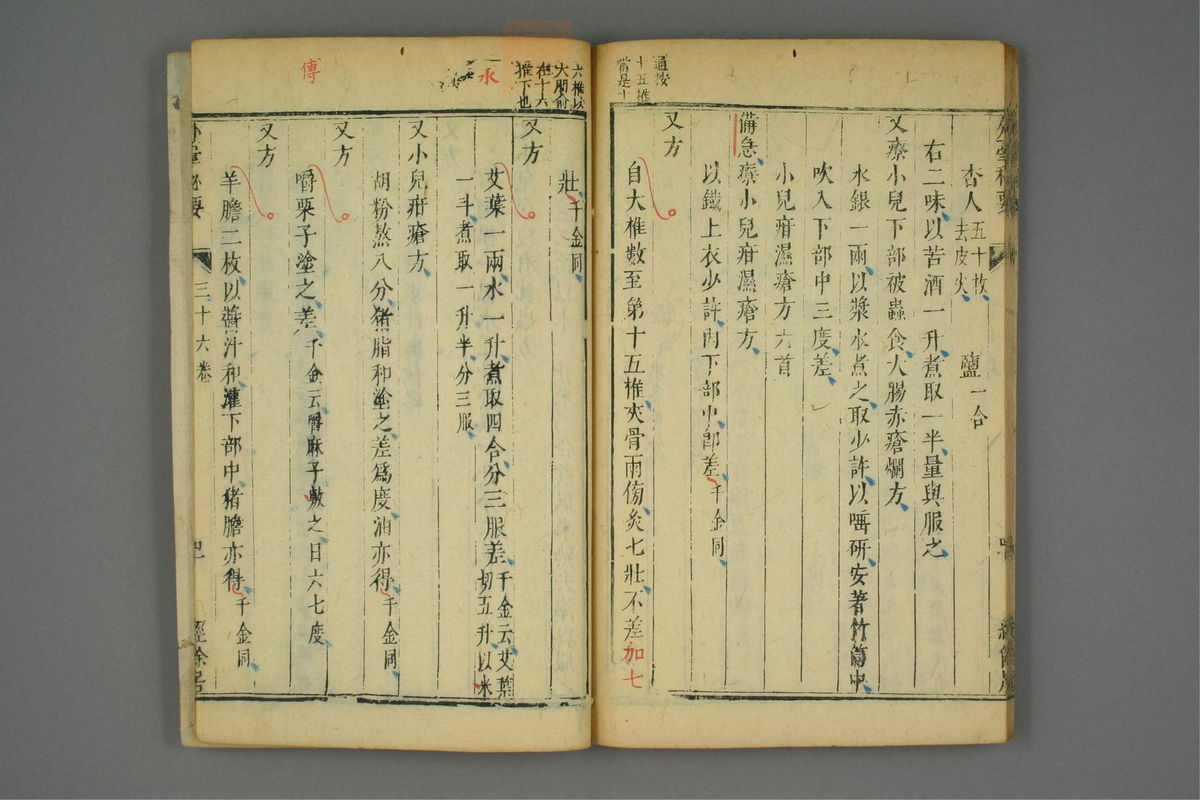 杏人五十枚去皮尖 鹽一合
右二味以苦酒一升煮取一半量與服之
又療小兒下部被蟲食大腸赤瘡爛方
水銀一兩以漿水煮之取少許以唾研安著竹筒中
吹入下部中三度差
小兒疳濕瘡方六首
備急療小兒疳濕瘡方
以鐵上衣少許內下部中即差千金同
又方
自大椎數至第十五椎夾骨兩傍灸七壯不差加七
通按
十五椎
當是十
六椎以
大腸俞
在十六
椎下也
壯千金同
又方
艾葉一兩水一升煮取四合分三服差千金云艾葉
切五升以水
一斗煮取一升半分三服
又小兒疳瘡方
胡粉熬八分猪脂和塗之差爲度油亦得千金同
又方
嚼栗子塗之差千金云嚼麻子敷之日六七度
又方
羊膽二枚以醬汁和灌下部中猪膽亦得千金同
水
傅
外臺秘要
三十六卷
四
經餘居